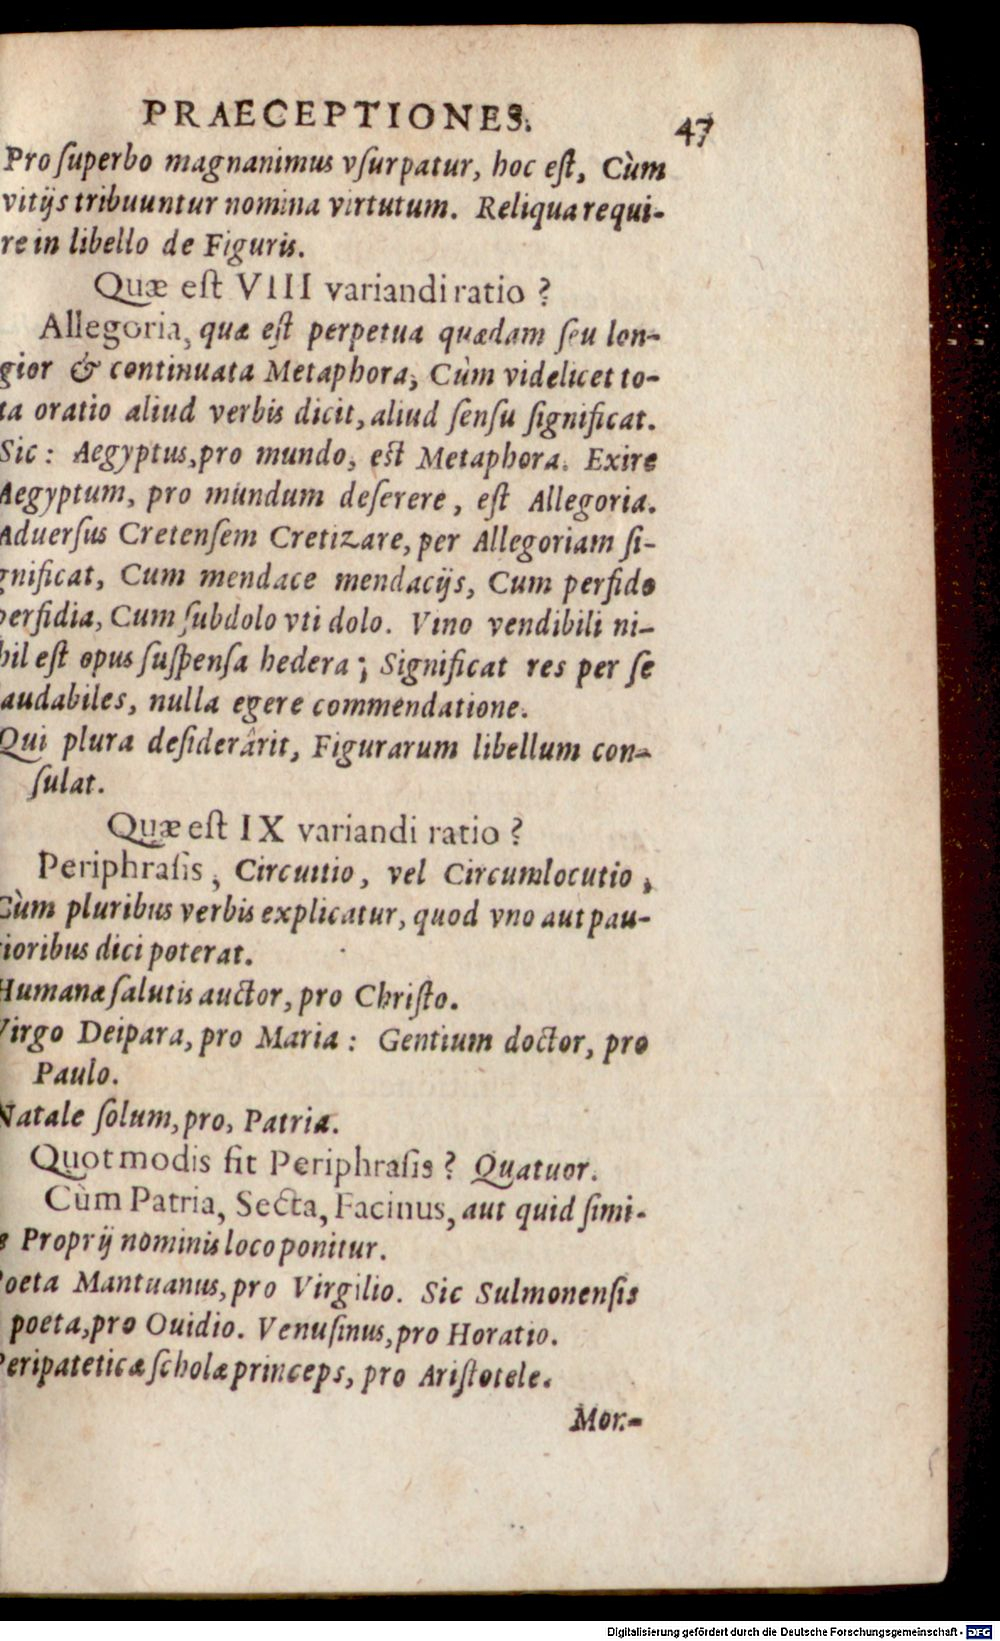 PRAECEPTIONES. 47
Pro ſuperbo magnanimus vſurpatur, hoc eſt, Cùm
vitijs tribuuntur nomina virtutum. Reliqua requi-
re in libello de Figuris.
Quæ eſt VIII variandi ratio ?
Allegoria, quæ eſt perpetua quædam ſeu lon-
gior & continuata Metaphora, Cùm videlicet to-
ta oratio aliud verbis dicit, aliud ſenſu ſignificat.
Sic : Aegyptus, pro mundo, eſt Metaphora. Exire
Aegyptum, pro mundum deſerere, eſt Allegoria.
Aduerſus Cretenſem Cretizare, per Allegoriam ſi-
gnificat, Cum mendace mendacijs, Cum perfido
perfidia, Cum ſubdolo vti dolo. Vino vendibili ni-
hil eſt opus ſuſpenſa hedera ; Significat res per ſe
laudabiles, nulla egere commendatione.
Qui plura deſiderârit, Figurarum libellum con-
ſulat.
Quæ eſt IX variandi ratio ?
Periphraſis, Circuitio, vel Circumlocutio,
Cùm pluribus verbis explicatur, quod vno aut pau-
cioribus dici poterat.
Humanæ ſalutis auctor, pro Chriſto.
Virgo Deipara, pro Maria : Gentium doctor, pro
Paulo.
Natale ſolum, pro, Patria.
Quot modis fit Periphraſis ? Quatuor.
Cùm Patria, Secta, Facinus, aut quid ſimi-
e Proprij nominis loco ponitur.
Poeta Mantuanus, pro Virgilio. Sic Sulmonenſis
poeta, pro Ouidio. Venuſinus, pro Horatio.
Peripateticæ ſcholæ princeps, pro Ariſtotele.
Mor.-
Digitalisierung gefördert durch die Deutsche Forschungsgemeinschaft - DFG